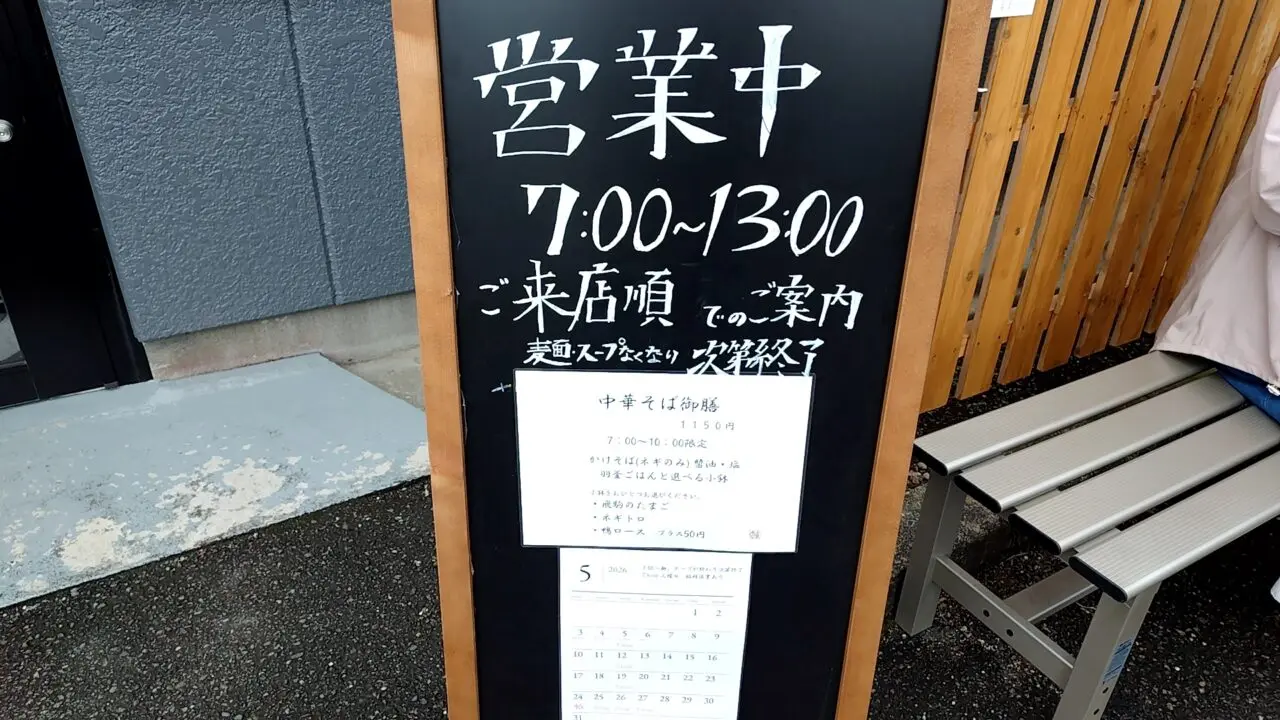 営業中
7:00~13:00
ご来店順 でのご案内
麺・スープなくなり 次第終了
中華そば御膳
1150円
7:00〜10:00限定
かけそば(ネギのみ) 醤油・塩
羽釜ごはんと選べる小鉢
小鉢をひとつお選びください。
・飛駒のたまご
・ネギトロ
・鴨ロース プラス50円
5 2026
1 2
3 4 5 6 7 8 9
10 11 12 13 14 15 16
17 18 19 20 21 22 23
24 25 26 27 28 29 30
31